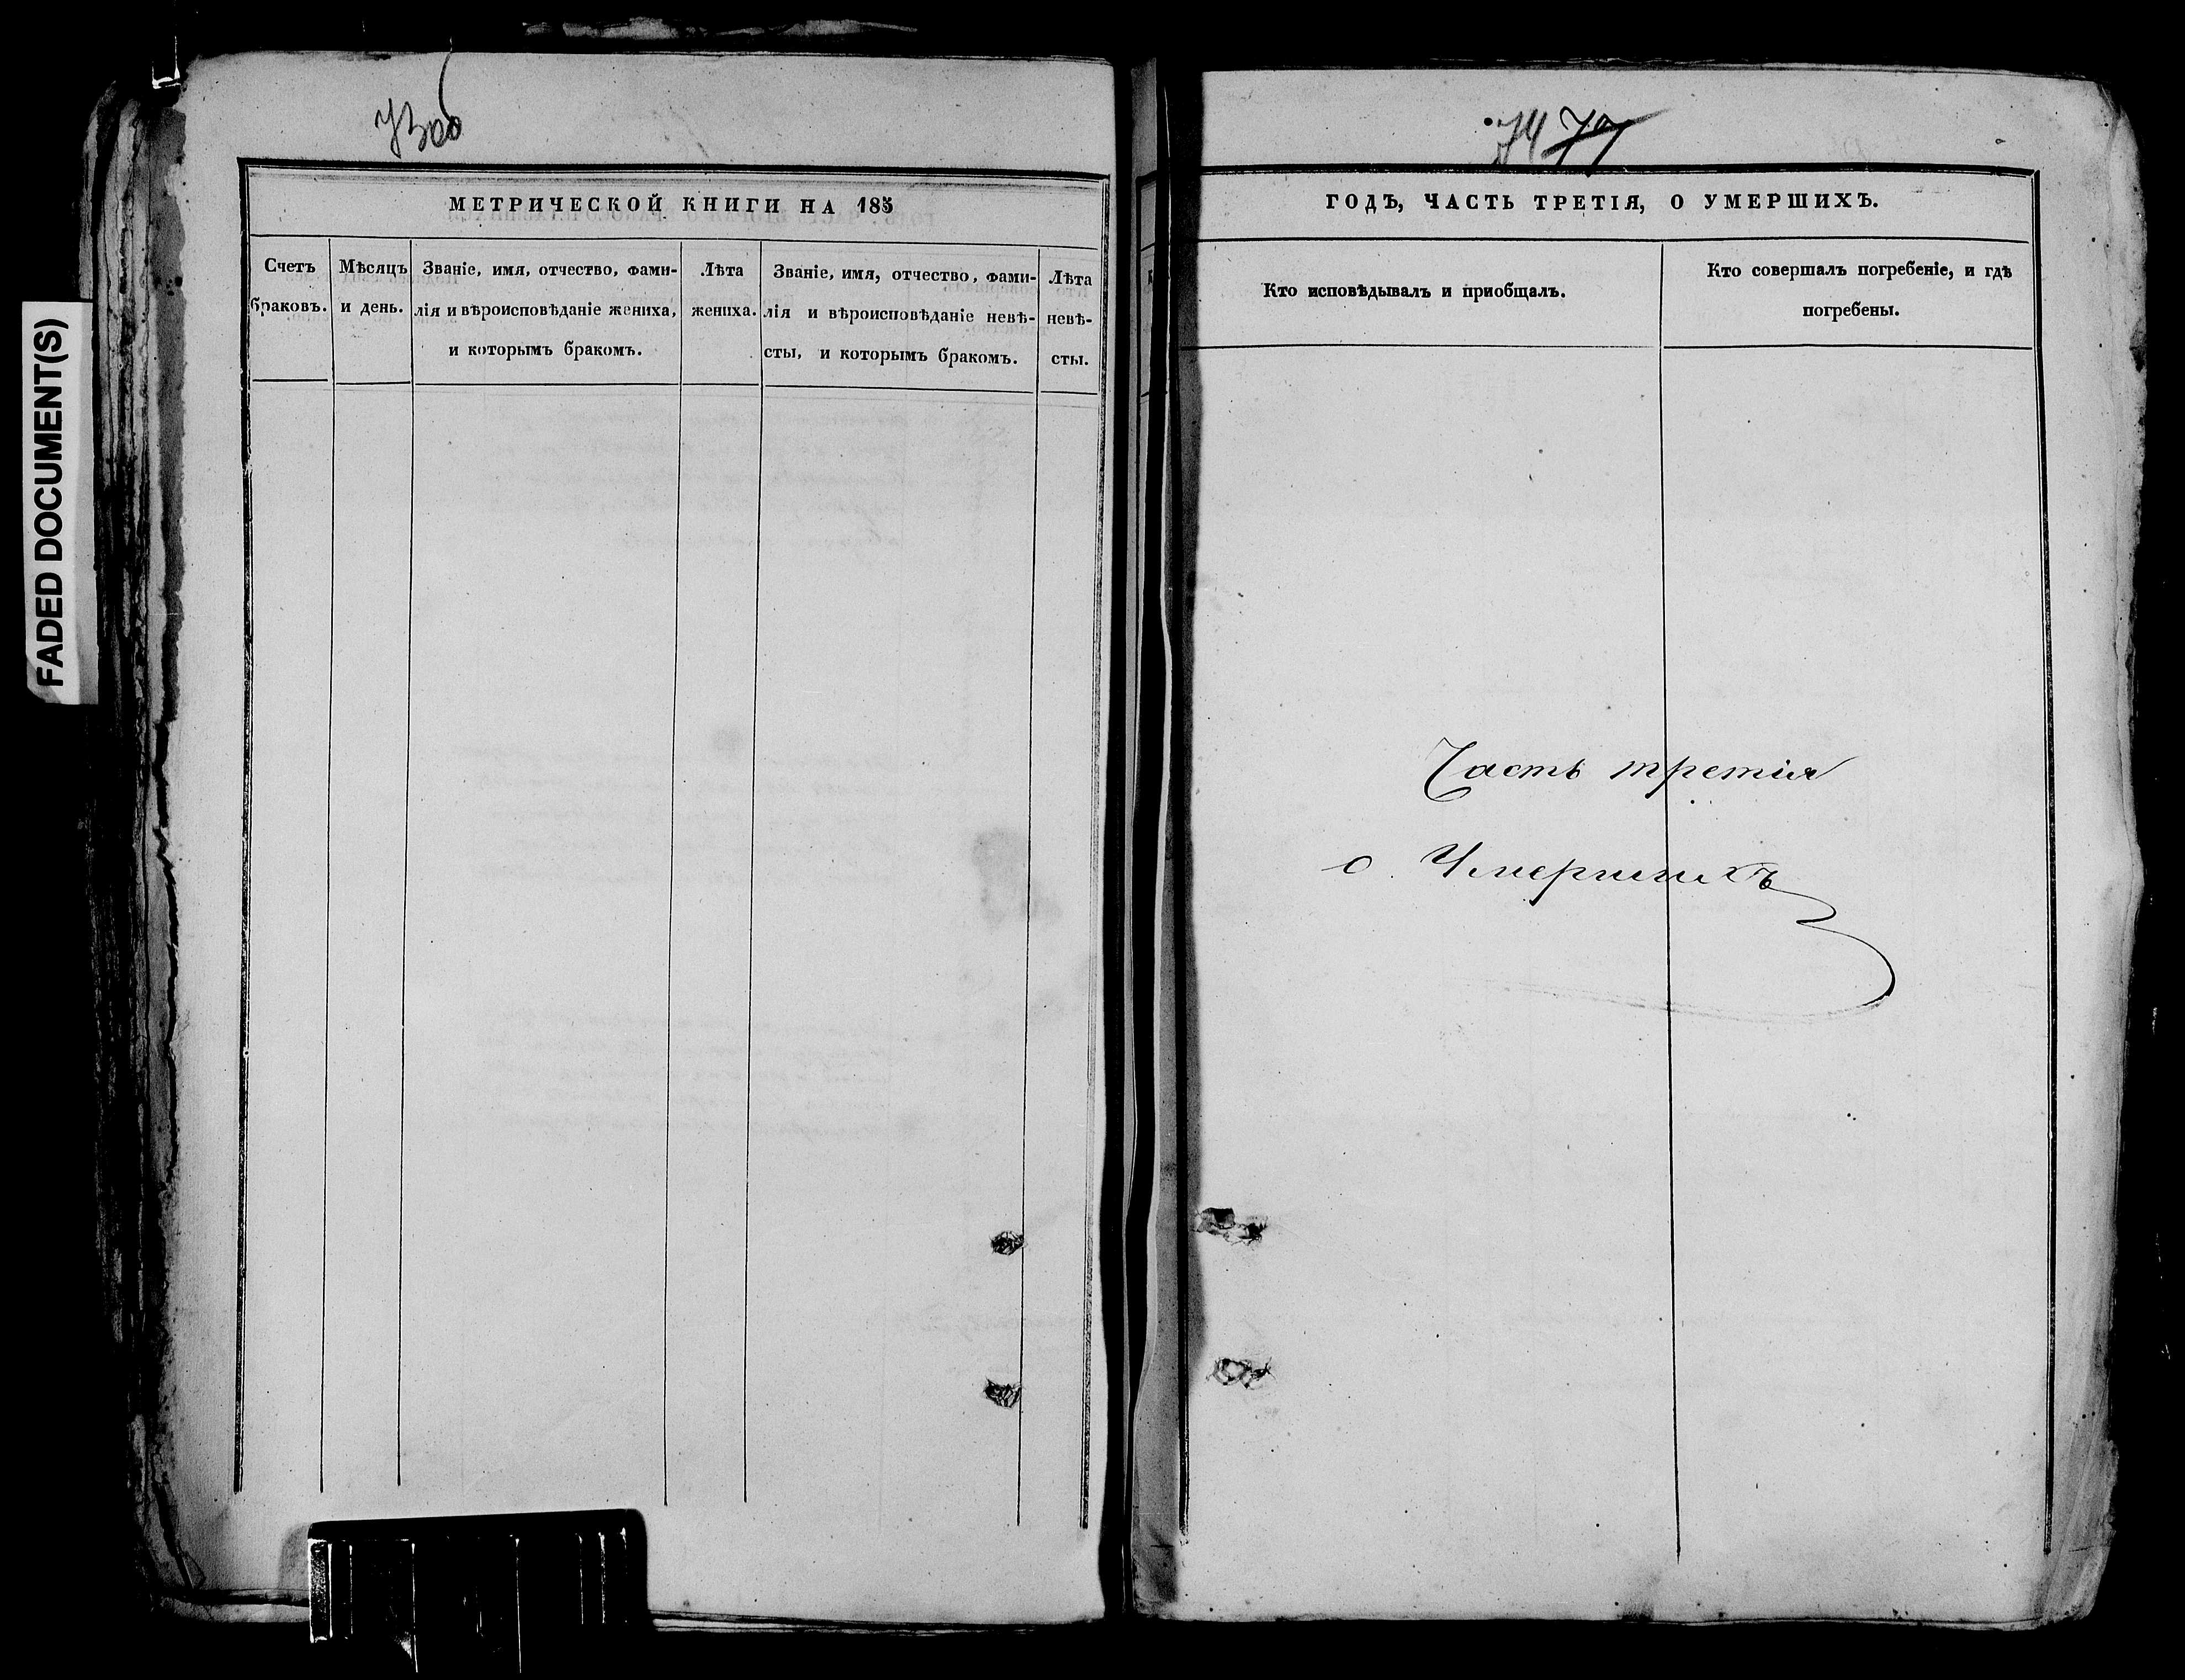 FADED DOCUMENT(S)
МЕТРИЧЕСКОЙ КНИГИ НА 185
Счетъ браковъ.
Мѣсяцъ и день.
Званіе, имя, отчество, фами-
лія и вѣроисповѣданіе жениха,
и которымъ бракомъ.
Лѣта
жениха.
Званіе, имя, отчество, фами-
лія и вѣроисповѣданіе невѣ-
сты, и которымъ бракомъ.
Лѣта
невѣ-
сты.
74 77
ГОДЪ, ЧАСТЬ ТРЕТІЯ, О УМЕРШИХЪ.
Кто исповѣдывалъ и пріобщалъ.
Кто совершалъ погребеніе, и гдѣ
погребены.
Часть третія
о Умершихъ